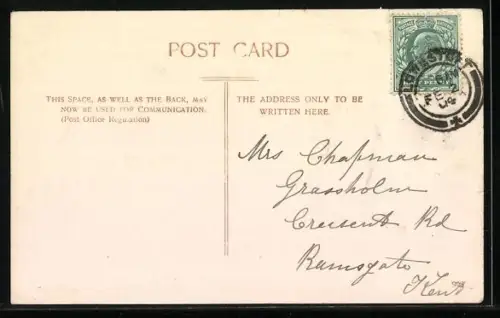 POST CARD
THIS SPACE, AS WELL AS THE BACK, MAY
NOW BE USED FOR COMMUNICATION.
(Post Office Regulation)
THE ADDRESS ONLY TO BE
WRITTEN HERE.
Mrs Chapman
Grassholm
Crescent Rd
Ramsgate
Kent